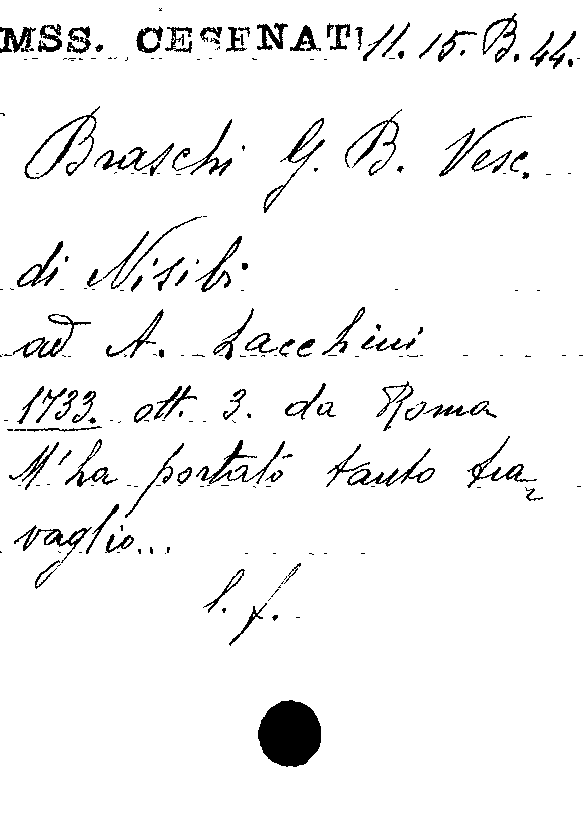 MSS. CESENATI 11. 15. B. 44.
Braschi G. B. Vesc.
di Nisibi
ad A. Lacchini
1733. ott. 3. da Roma
M'ha portato tanto tra=
vaglio...
l. f.